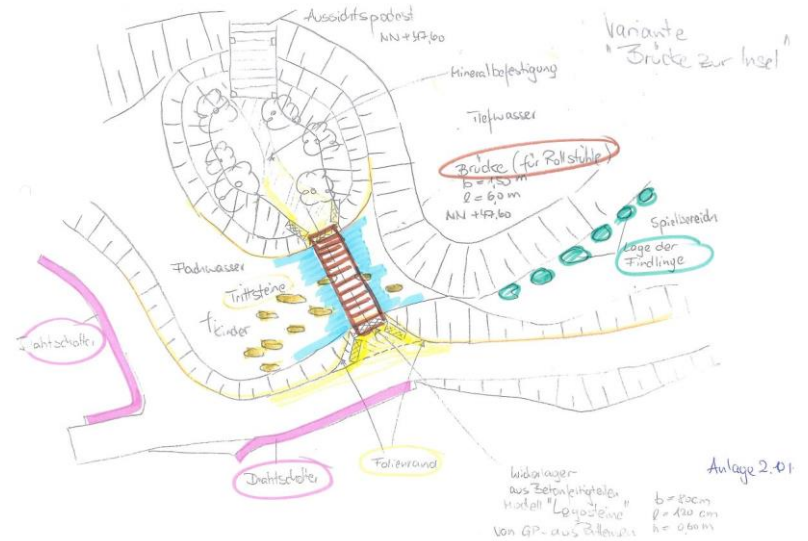 Aussichtspodest
NN +47,60
Variante
"Brücke zur Insel"
Mineralbefestigung
Tiefwasser
Brücke (für Rollstühle)
b = 1,50 m
l = 6,0 m
NN +47,60
Spielbereich
Lage der
Findlinge
Flachwasser
Trittsteine
f. Kinder
Drahtschotter
Drahtschotter
Folienrand
Widerlager
aus Betonfertigteilen
Modell "Legosteine"
von GP- aus
b = 80cm
l = 120 cm
h = 0,60 m
Anlage 2.01